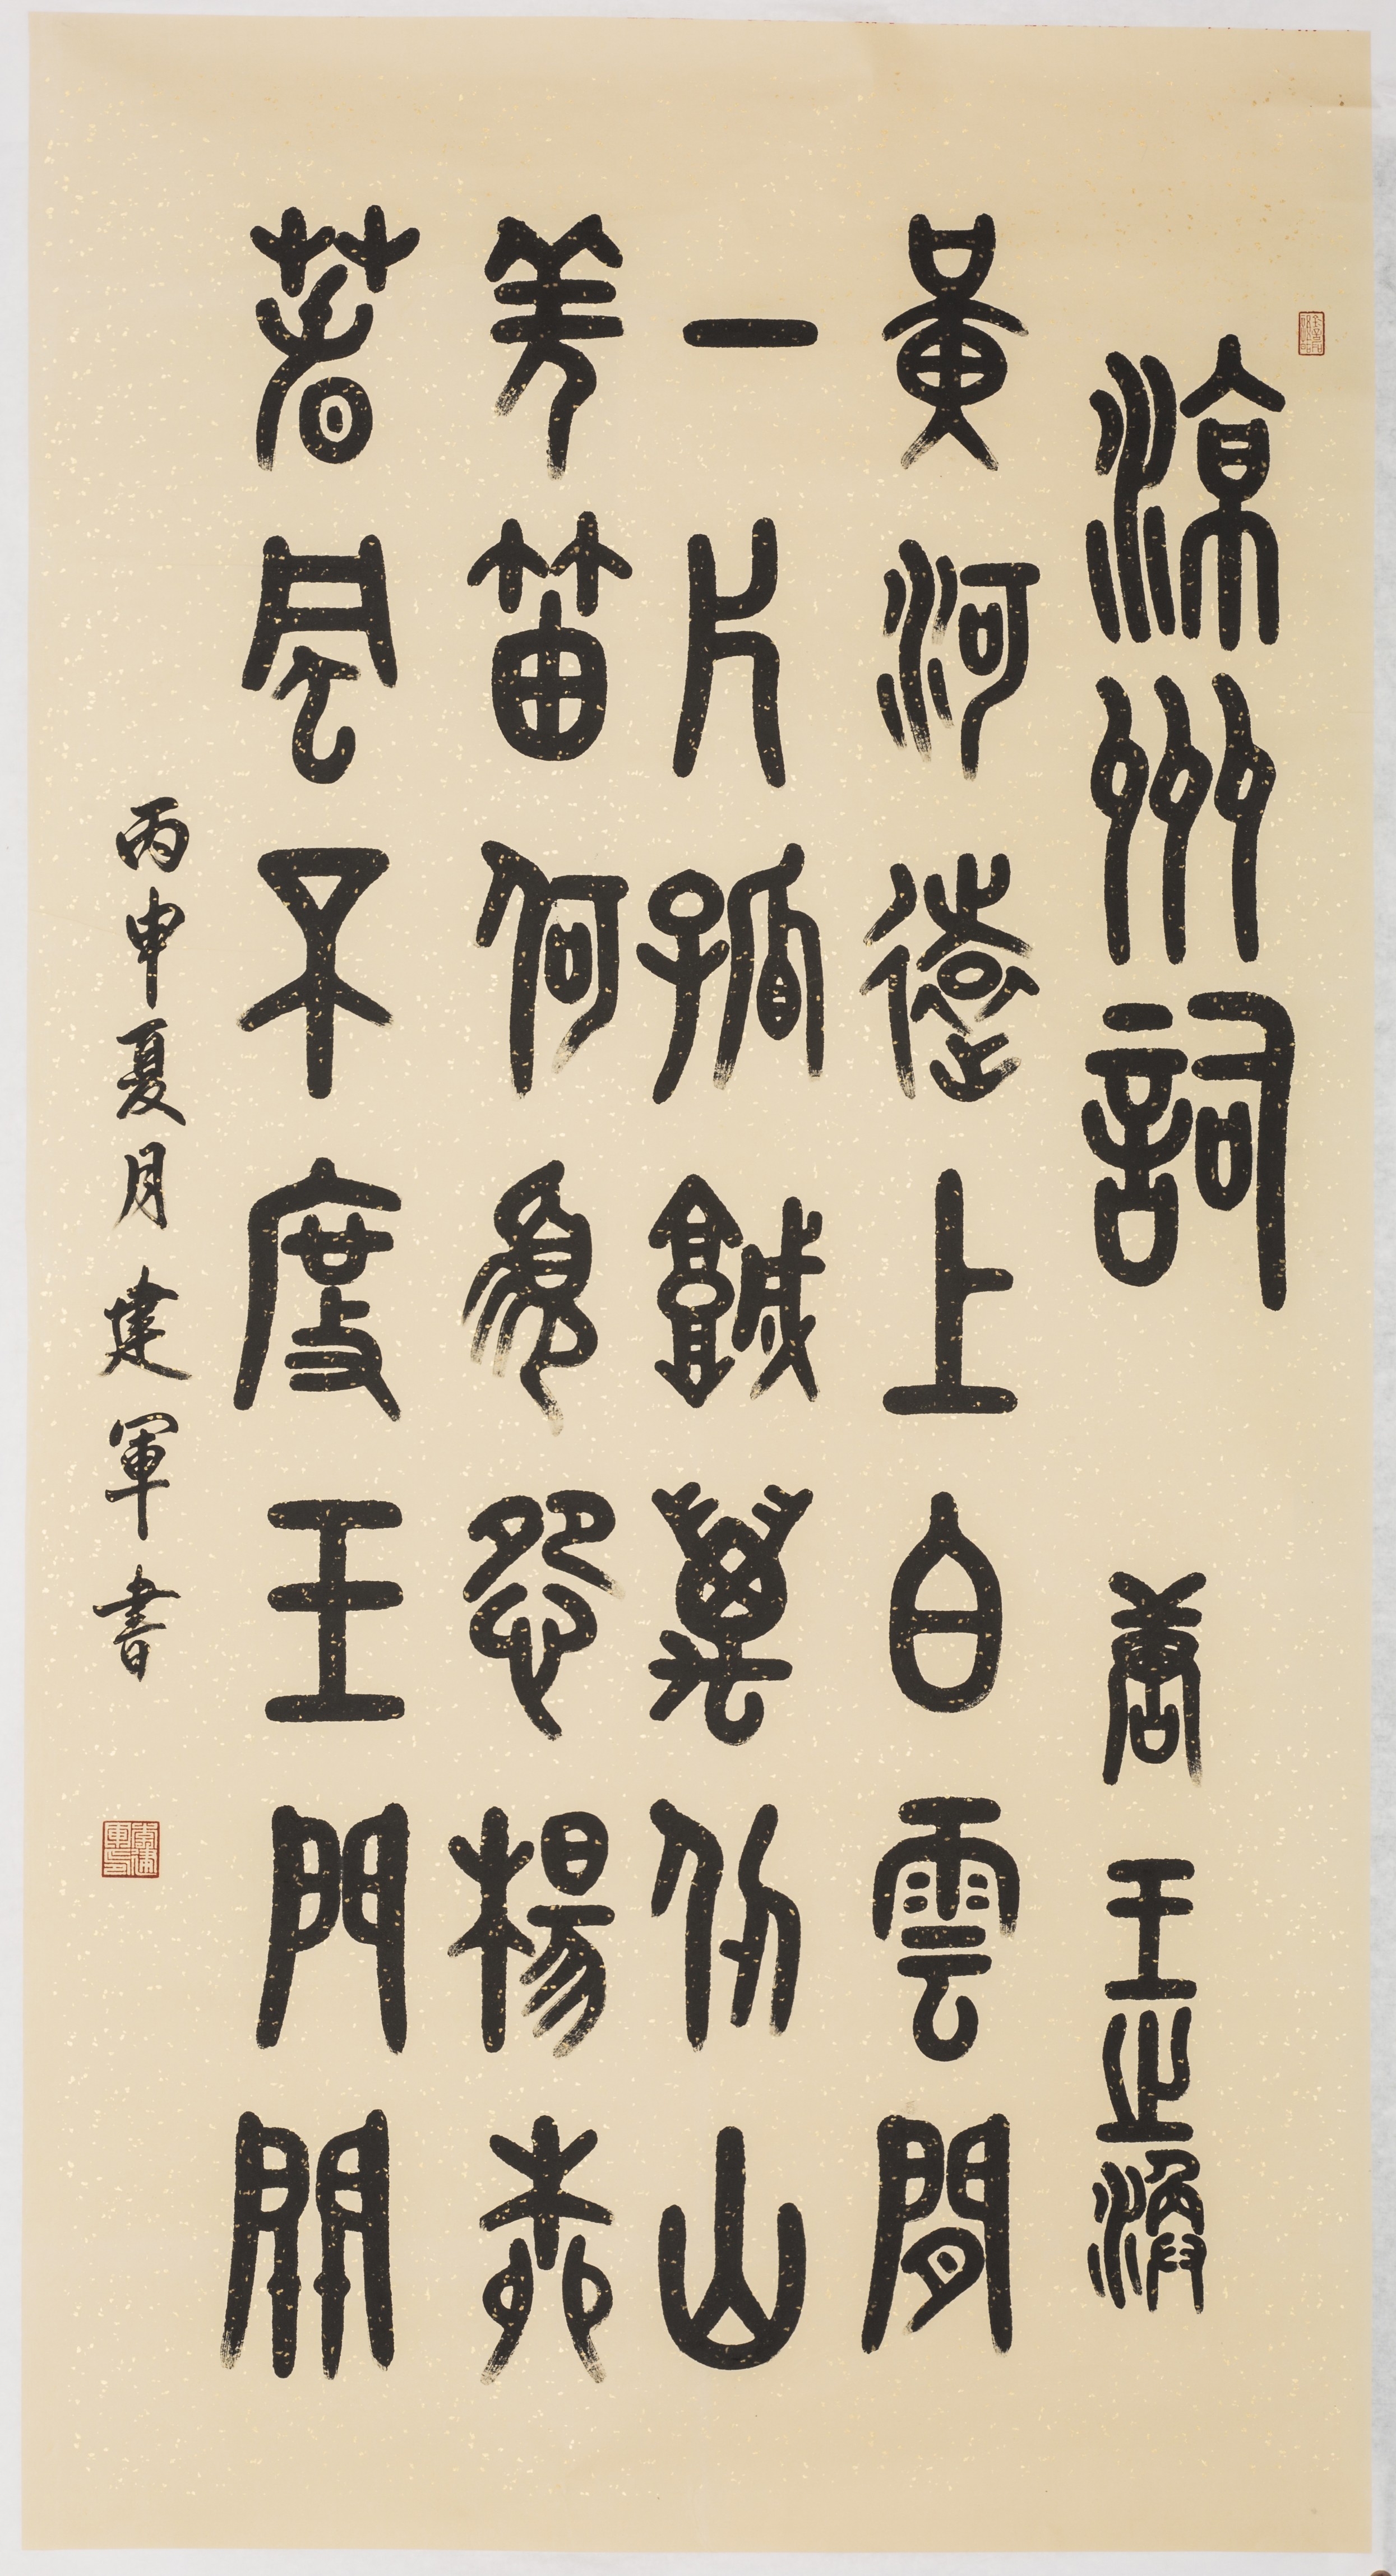 涼州詞 唐 王之渙
黃河遠上白雲間
一片孤城萬仞山
羌笛何須怨楊柳
春風不度玉門關
丙申夏月建軍書